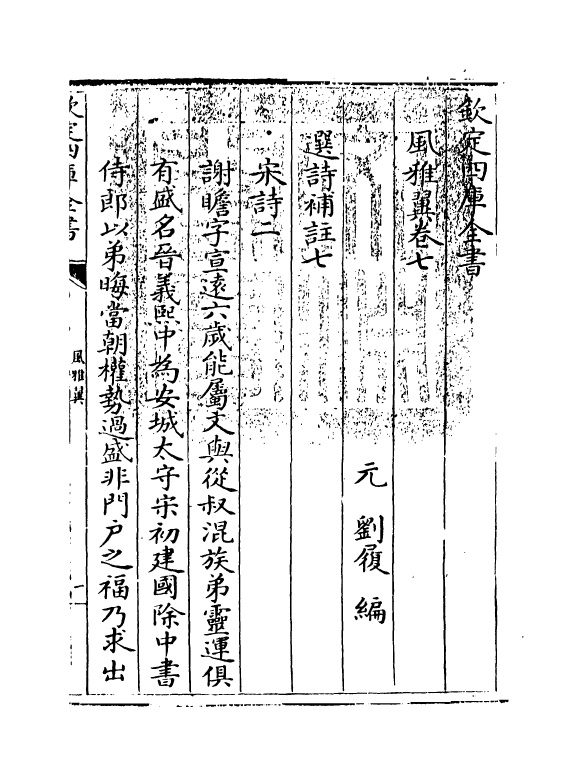 欽定四庫全書
風雅翼卷七
元 劉履 編
選詩補註七
宋詩二
謝瞻字宣遠六歲能屬文與從叔混族弟靈運俱
有盛名晉義熙中為安城太守宋初建國除中書
侍郎以弟晦當朝權勢過盛非門户之福乃求出
欽定四庫全書
風雅翼
一